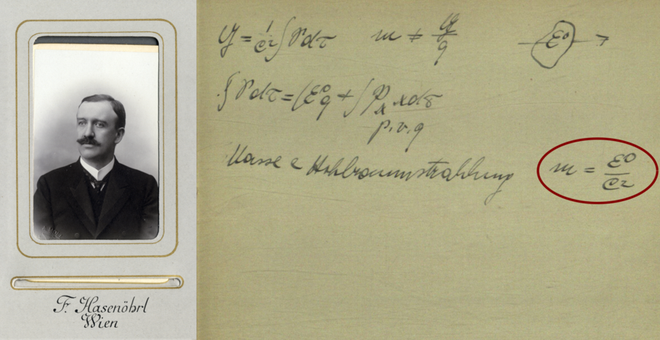 F. Hasenöhrl
Wien
y = 1/c² ∫ γ dτ m ≠ y/q ε⁰ →
∫ γ dτ = (ε⁰q + ∫ pₓ x dτ
p.v.q
Masse Hohlraumstrahlung m = ε⁰/c²